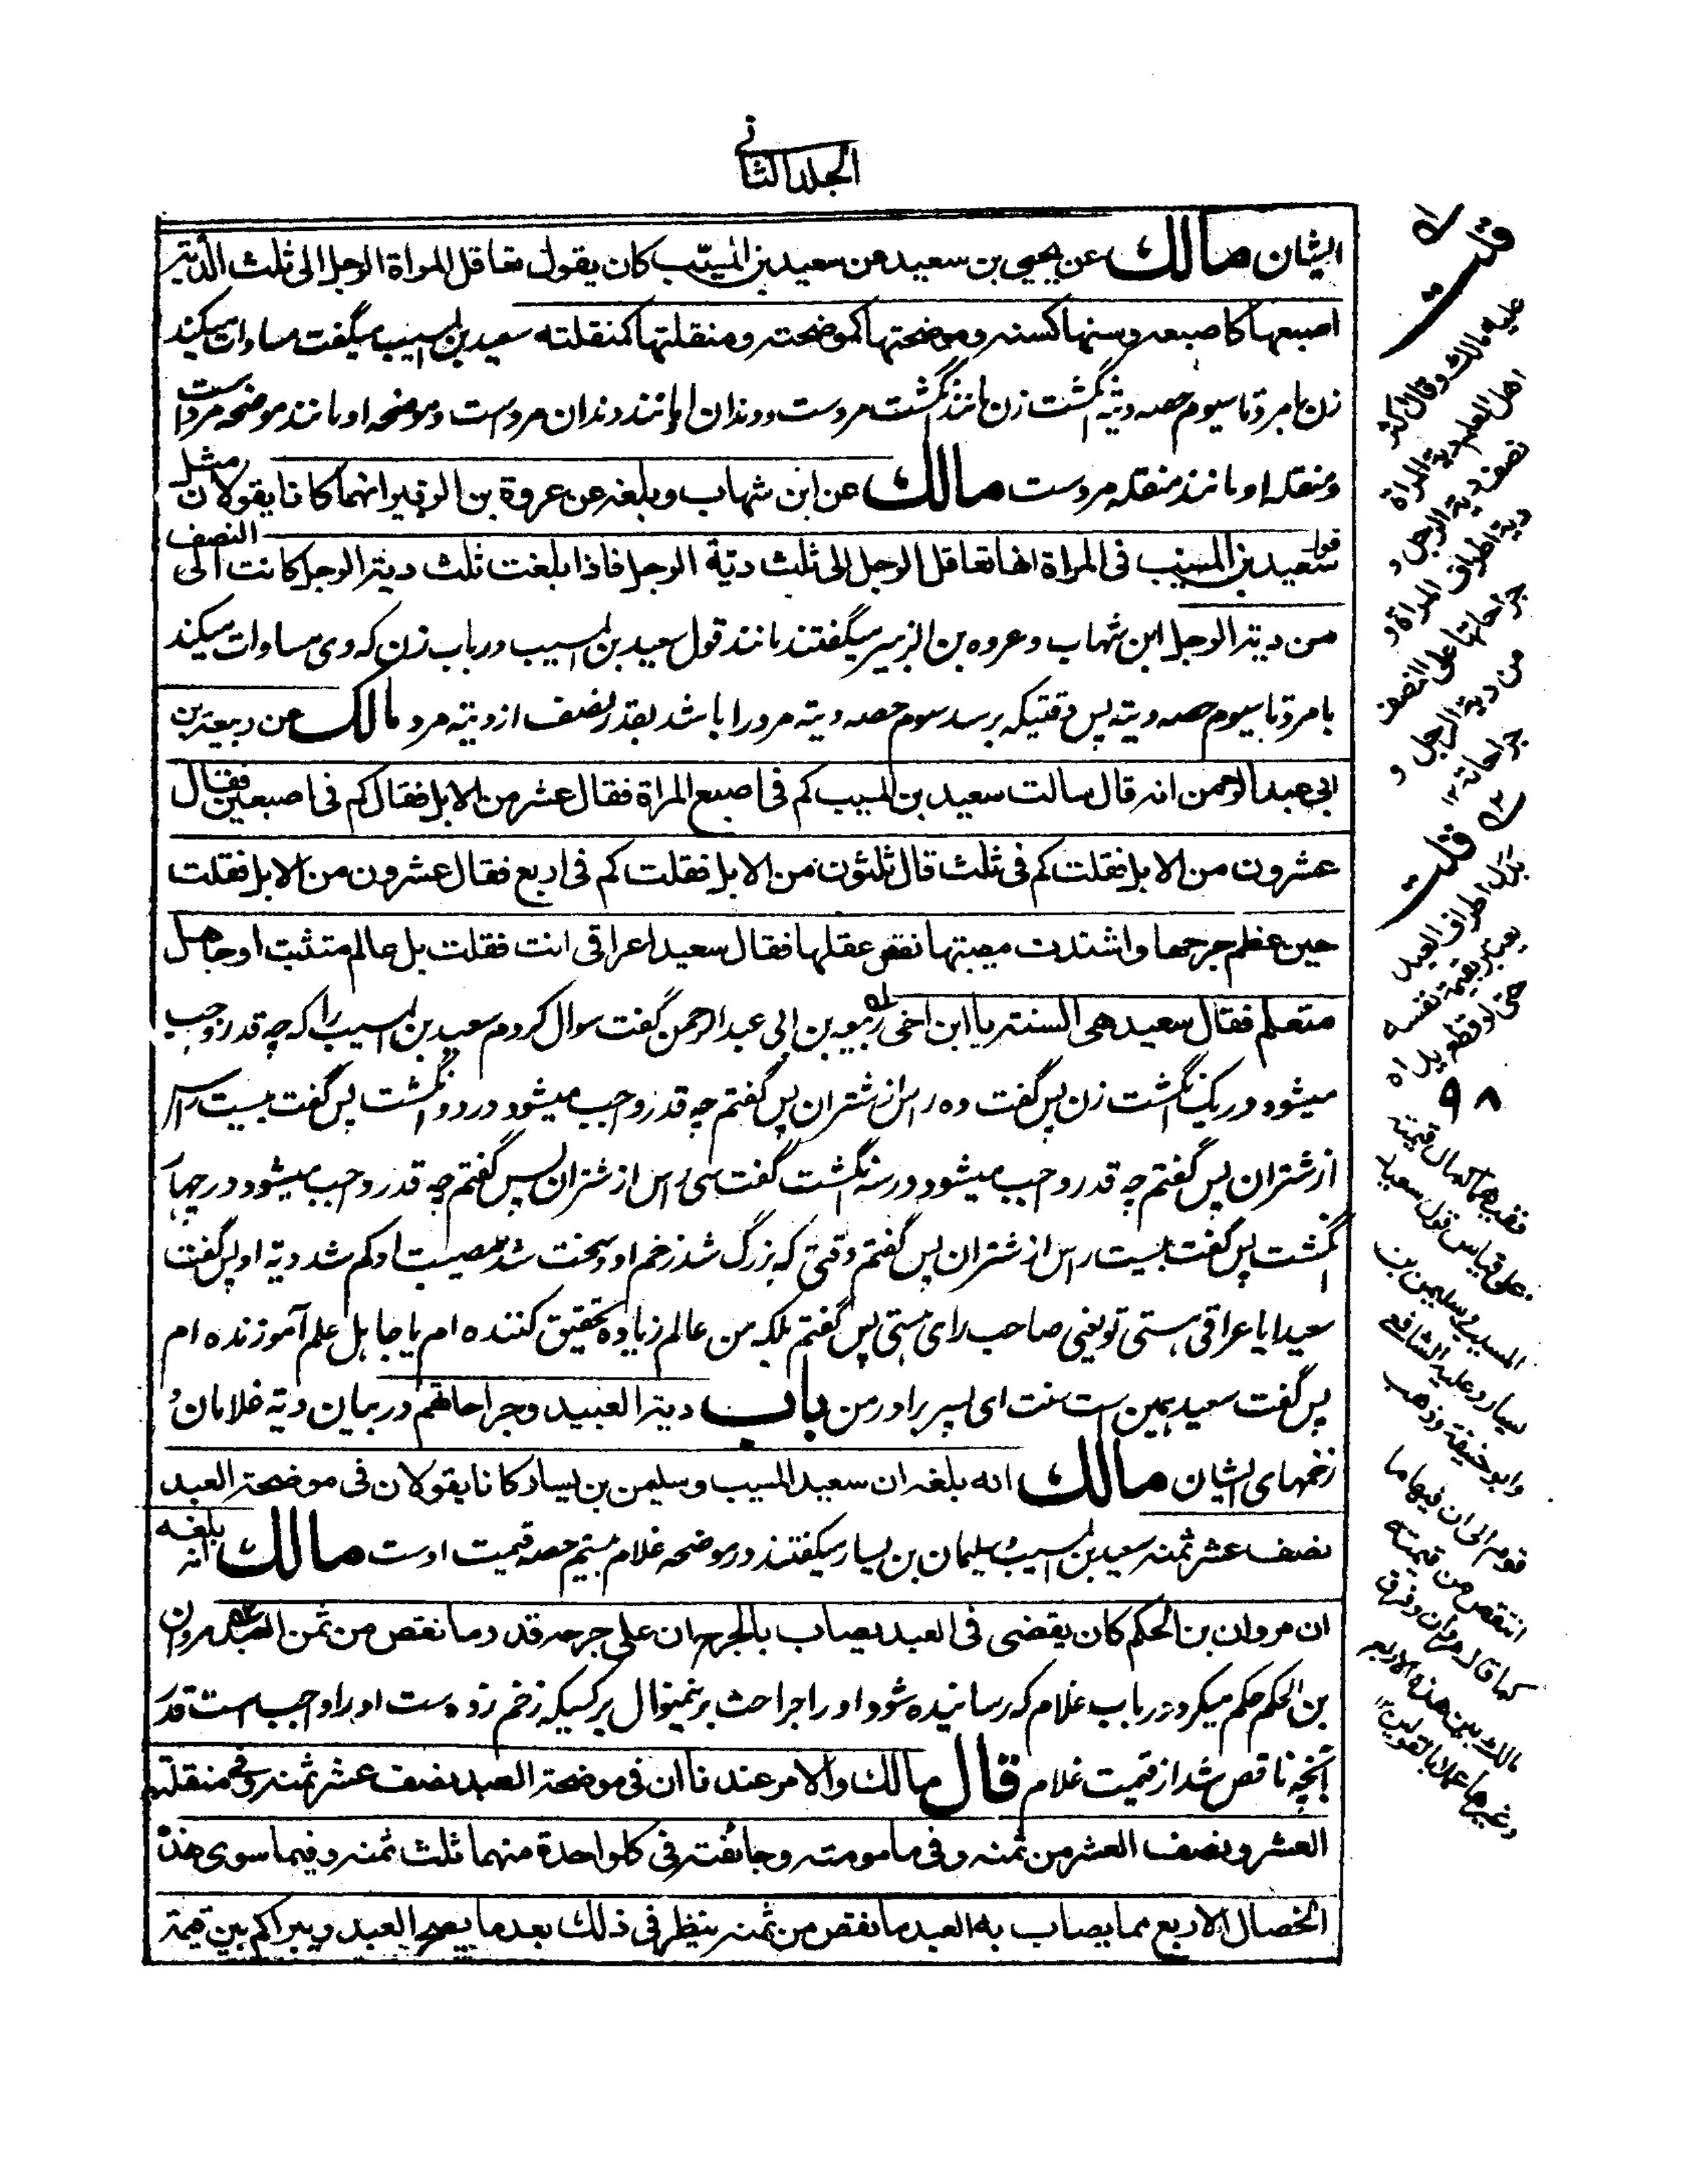 الجلد الثانی
ایشان مالك عن يحيى بن سعيد عن سعيد بن المسيّب كان يقول تعاقل المراة الرجل الى ثلث الدية
اصبعها كاصبعه وسنها كسنه وموضحتها كموضحته ومنقلتها كمنقلته سعید بن المسیب میگفت مساوات میکند
زن با مرد تا سیوم حصه دیته انگشت زن مانند انگشت مردست ودندان او مانند دندان مردست وموضحه او مانند موضحه مرداست
ومنقله او مانند منقله مردست مالك عن ابن شهاب وبلغه عن عروة بن الزبير انهما كانا يقولان مثل
قول سعيد بن المسيب فى المراة انها تعاقل الرجل الى ثلث ديّة الرجل فاذا بلغت ثلث دية الرجل كانت الى النصف
من دية الرجل ابن شهاب وعروه بن الزبیر میگفتند مانند قول سعید بن المسیب در باب زن که وی مساوات میکند
با مرد تا سیوم حصه دیته پس وقتیکه برسد سوم حصه دیته مرد را باشد بقدر نصف از دیته مرد مالك عن ربيعة بن
ابى عبد الرحمن انه قال سالت سعيد بن المسيب كم فى اصبع المراة فقال عشر من الابل فقال كم فى اصبعين فقال
عشرون من الابل فقلت كم فى ثلث قال ثلثون من الابل فقلت كم فى اربع فقال عشرون من الابل فقلت
حين عظم جرحها واشتدت مصيبتها نقص عقلها فقال سعيد اعراقى انت فقلت بل عالم متثبت او جاهل
متعلم فقال سعيد هى السنة يا ابن اخى ربیعه بن ابی عبد الرحمن گفت سوال کردم سعید بن المسیب را که چه قدر واجب
میشود در یک انگشت زن پس گفت ده راس از شتران پس گفتم چه قدر واجب میشود در دو انگشت پس گفت بیست راس
از شتران پس گفتم چه قدر واجب میشود در سه انگشت گفت سی راس از شتران پس گفتم چه قدر واجب میشود در چهار
انگشت پس گفت بیست راس از شتران پس گفتم وقتی که بزرگ شد زخم او وسخت شد مصیبت او کم شد دیة او پس گفت
سعید ایا عراقی هستی تو یعنی صاحب رای هستی پس گفتم بلکه من عالم زیاده تحقیق کننده ام یا جاهل علم آموزنده ام
پس گفت سعید همین ست سنت ای پسر برادر من باب دية العبيد وجراحاتهم در بیان دیة غلامان و
زخمهای ایشان مالك انه بلغه ان سعيد المسيب وسليمن بن يسار كانا يقولان فى موضحة العبد
نصف عشر ثمنه سعید بن المسیب وسلیمان بن یسار میگفتند در موضحه غلام بیستم حصه قیمت اوست مالك انه بلغه
ان مروان بن الحكم كان يقضى فى العبد يصاب بالجرح ان على جرحه قدر ما نقص من ثمن العبد مروان
بن الحکم حکم میکرد در باب غلام که رسانیده شود او را جراحت برینمنوال بر کسیکه زخم زده ست او را واجب است قدر
آنچه ناقص شد از قیمت غلام قال مالك والامر عندنا ان فى موضحة العبد نصف عشر ثمنه وفى منقلته
العشر ونصف العشر من ثمنه وفى مامومته وجائفته فى كل واحدة منهما ثلث ثمنه وفيما سوى هذه
الخصال الاربع مما يصاب به العبد ما نقص من ثمنه ينظر فى ذلك بعد ما يصح العبد ويبرا كم بين قيمة
قلت
عليه مالك وقال اكثر
اهل العلم دية المراة
نصف دية الرجل و
دية اطراف المراة و
جراحاتها على النصف
من دية الرجل و
جراحاته ١٢
قلت
بدل اطراف العبد
يعتبر بقيمة نفسه
حتى لو قطع يداه
٩٨
ففيهما كمال قيمته
على قياس قول سعيد بن
المسيب وسليمن بن
يسار وعليه الشافعى
وابو حنيفة وذهب
قوم الى ان فيهما ما
انتقص من قيمته
كما قال مروان وفرق
مالك بين هذه الاربعة
وغيرها عملا بالقولين ١٢